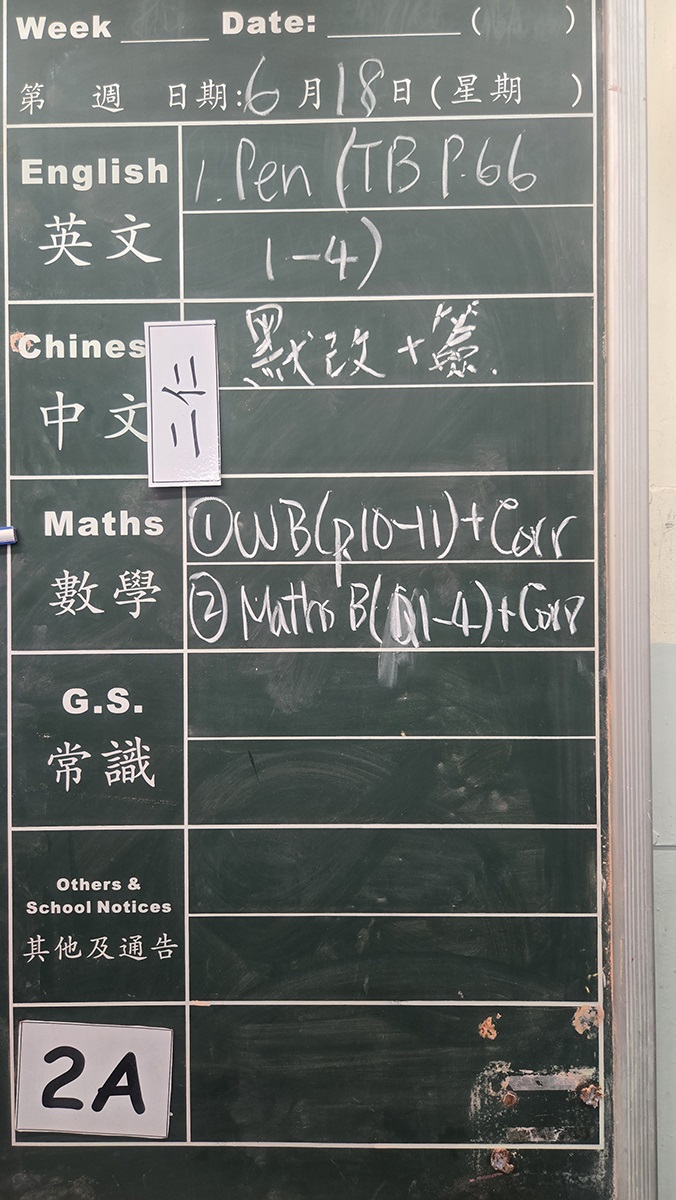 Week ____ Date: ______ ( )
第 週 日期:6月18日(星期 )
English 1. Pen (TB P.66
英文 1-4)
Chines 默改+簽.
中文
二仁
Maths ①WB(p10-11)+Corr
數學 ②Maths B(Q1-4)+Corr
G.S.
常識
Others &
School Notices
其他及通告
2A